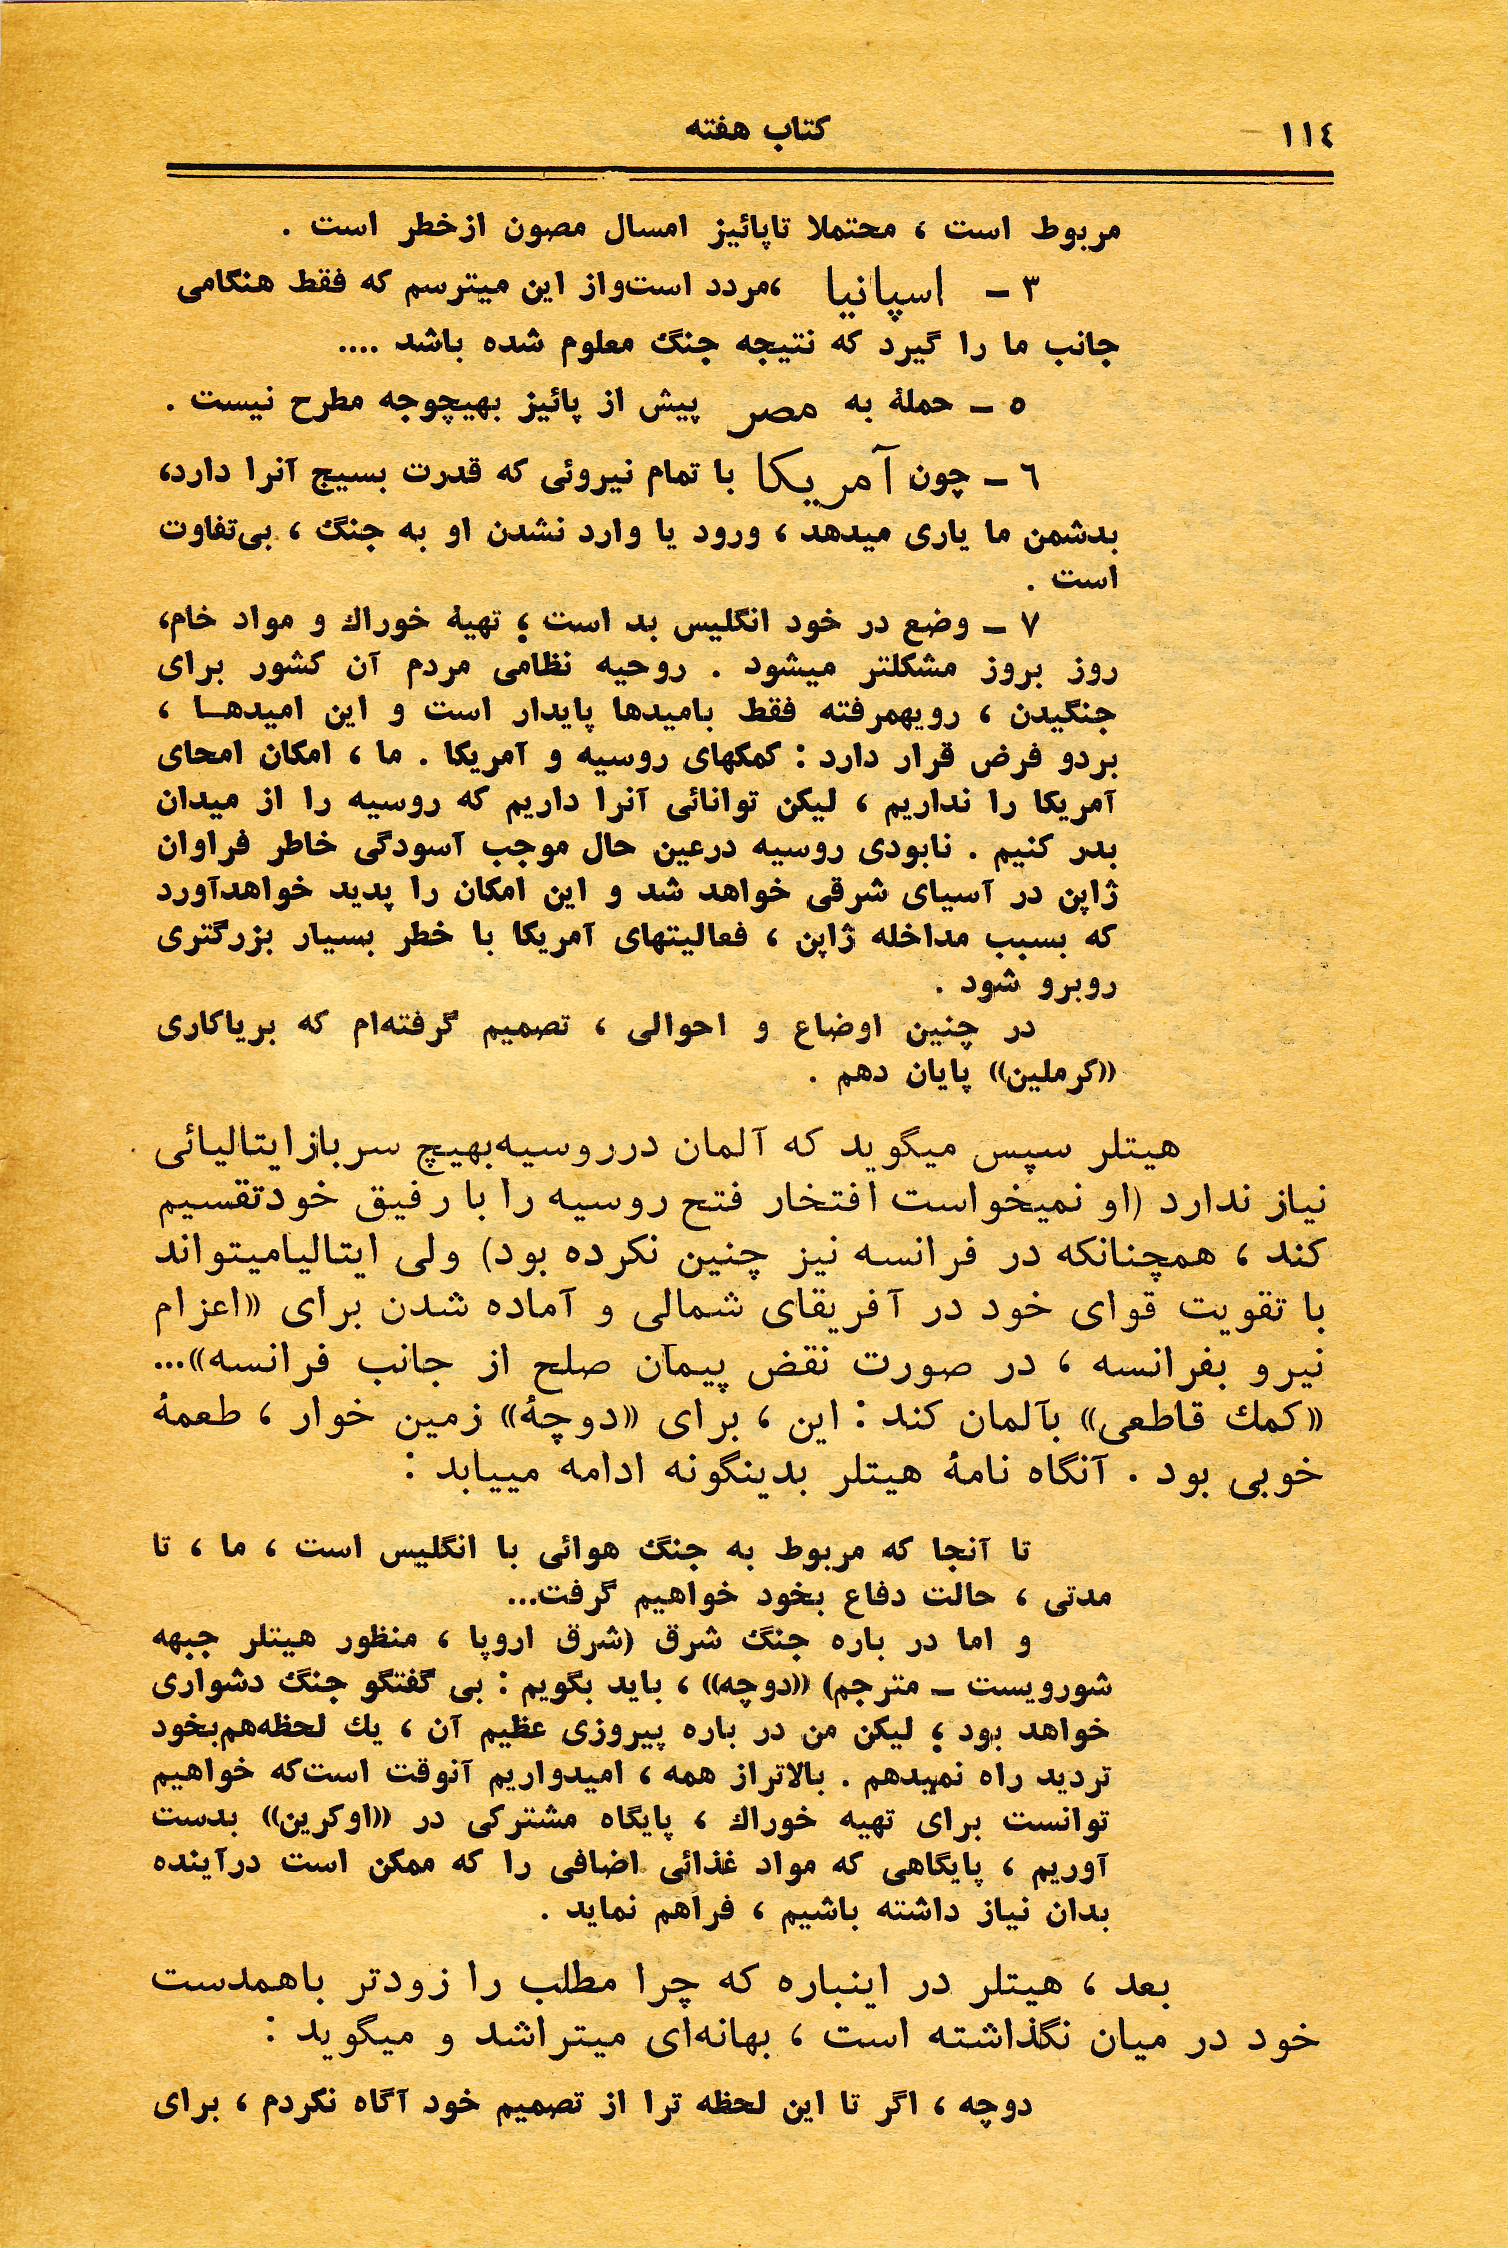 ١١٤
کتاب هفته
مربوط است ، محتملا تاپائیز امسال مصون ازخطر است .
۳ ـ اسپانیا ،مردد است‌واز این میترسم که فقط هنگامی
جانب ما را گیرد که نتیجه جنگ معلوم شده باشد ....
٥ ـ حملهٔ به مصر پیش از پائیز بهیچوجه مطرح نیست .
٦ ـ چون آمریکا با تمام نیروئی که قدرت بسیج آنرا دارد،
بدشمن ما یاری میدهد ، ورود یا وارد نشدن او به جنگ ، بی‌تفاوت
است .
۷ ـ وضع در خود انگلیس بد است ؛ تهیهٔ خوراك و مواد خام،
روز بروز مشکلتر میشود . روحیه نظامی مردم آن کشور برای
جنگیدن ، رویهمرفته فقط بامیدها پایدار است و این امیدهـا ،
بردو فرض قرار دارد : کمکهای روسیه و آمریکا . ما ، امکان امحای
آمریکا را نداریم ، لیکن توانائی آنرا داریم که روسیه را از میدان
بدر کنیم . نابودی روسیه درعین حال موجب آسودگی خاطر فراوان
ژاپن در آسیای شرقی خواهد شد و این امکان را پدید خواهدآورد
که بسبب مداخله ژاپن ، فعالیتهای آمریکا با خطر بسیار بزرگتری
روبرو شود .
در چنین اوضاع و احوالی ، تصمیم گرفته‌ام که بریاکاری
«کرملین» پایان دهم .
هیتلر سپس میگوید که آلمان درروسیه‌بهیچ سربازایتالیائی
نیاز ندارد (او نمیخواست افتخار فتح روسیه را با رفیق خودتقسیم
کند ، همچنانکه در فرانسه نیز چنین نکرده بود) ولی ایتالیامیتواند
با تقویت قوای خود در آفریقای شمالی و آماده شدن برای «اعزام
نیرو بفرانسه ، در صورت نقض پیمان صلح از جانب فرانسه»...
«کمك قاطعی» بآلمان کند : این ، برای «دوچهٔ» زمین خوار ، طعمهٔ
خوبی بود . آنگاه نامهٔ هیتلر بدینگونه ادامه مییابد :
تا آنجا که مربوط به جنگ هوائی با انگلیس است ، ما ، تا
مدتی ، حالت دفاع بخود خواهیم گرفت...
و اما در باره جنگ شرق (شرق اروپا ، منظور هیتلر جبهه
شورویست ـ مترجم) «دوچه» ، باید بگویم : بی گفتگو جنگ دشواری
خواهد بود ؛ لیکن من در باره پیروزی عظیم آن ، یك لحظه‌هم‌بخود
تردید راه نمیدهم . بالاتراز همه ، امیدواریم آنوقت است‌که خواهیم
توانست برای تهیه خوراك ، پایگاه مشترکی در «اوکرین» بدست
آوریم ، پایگاهی که مواد غذائی اضافی را که ممکن است درآینده
بدان نیاز داشته باشیم ، فراهم نماید .
بعد ، هیتلر در اینباره که چرا مطلب را زودتر باهمدست
خود در میان نگذاشته است ، بهانه‌ای میتراشد و میگوید :
دوچه ، اگر تا این لحظه ترا از تصمیم خود آگاه نکردم ، برای